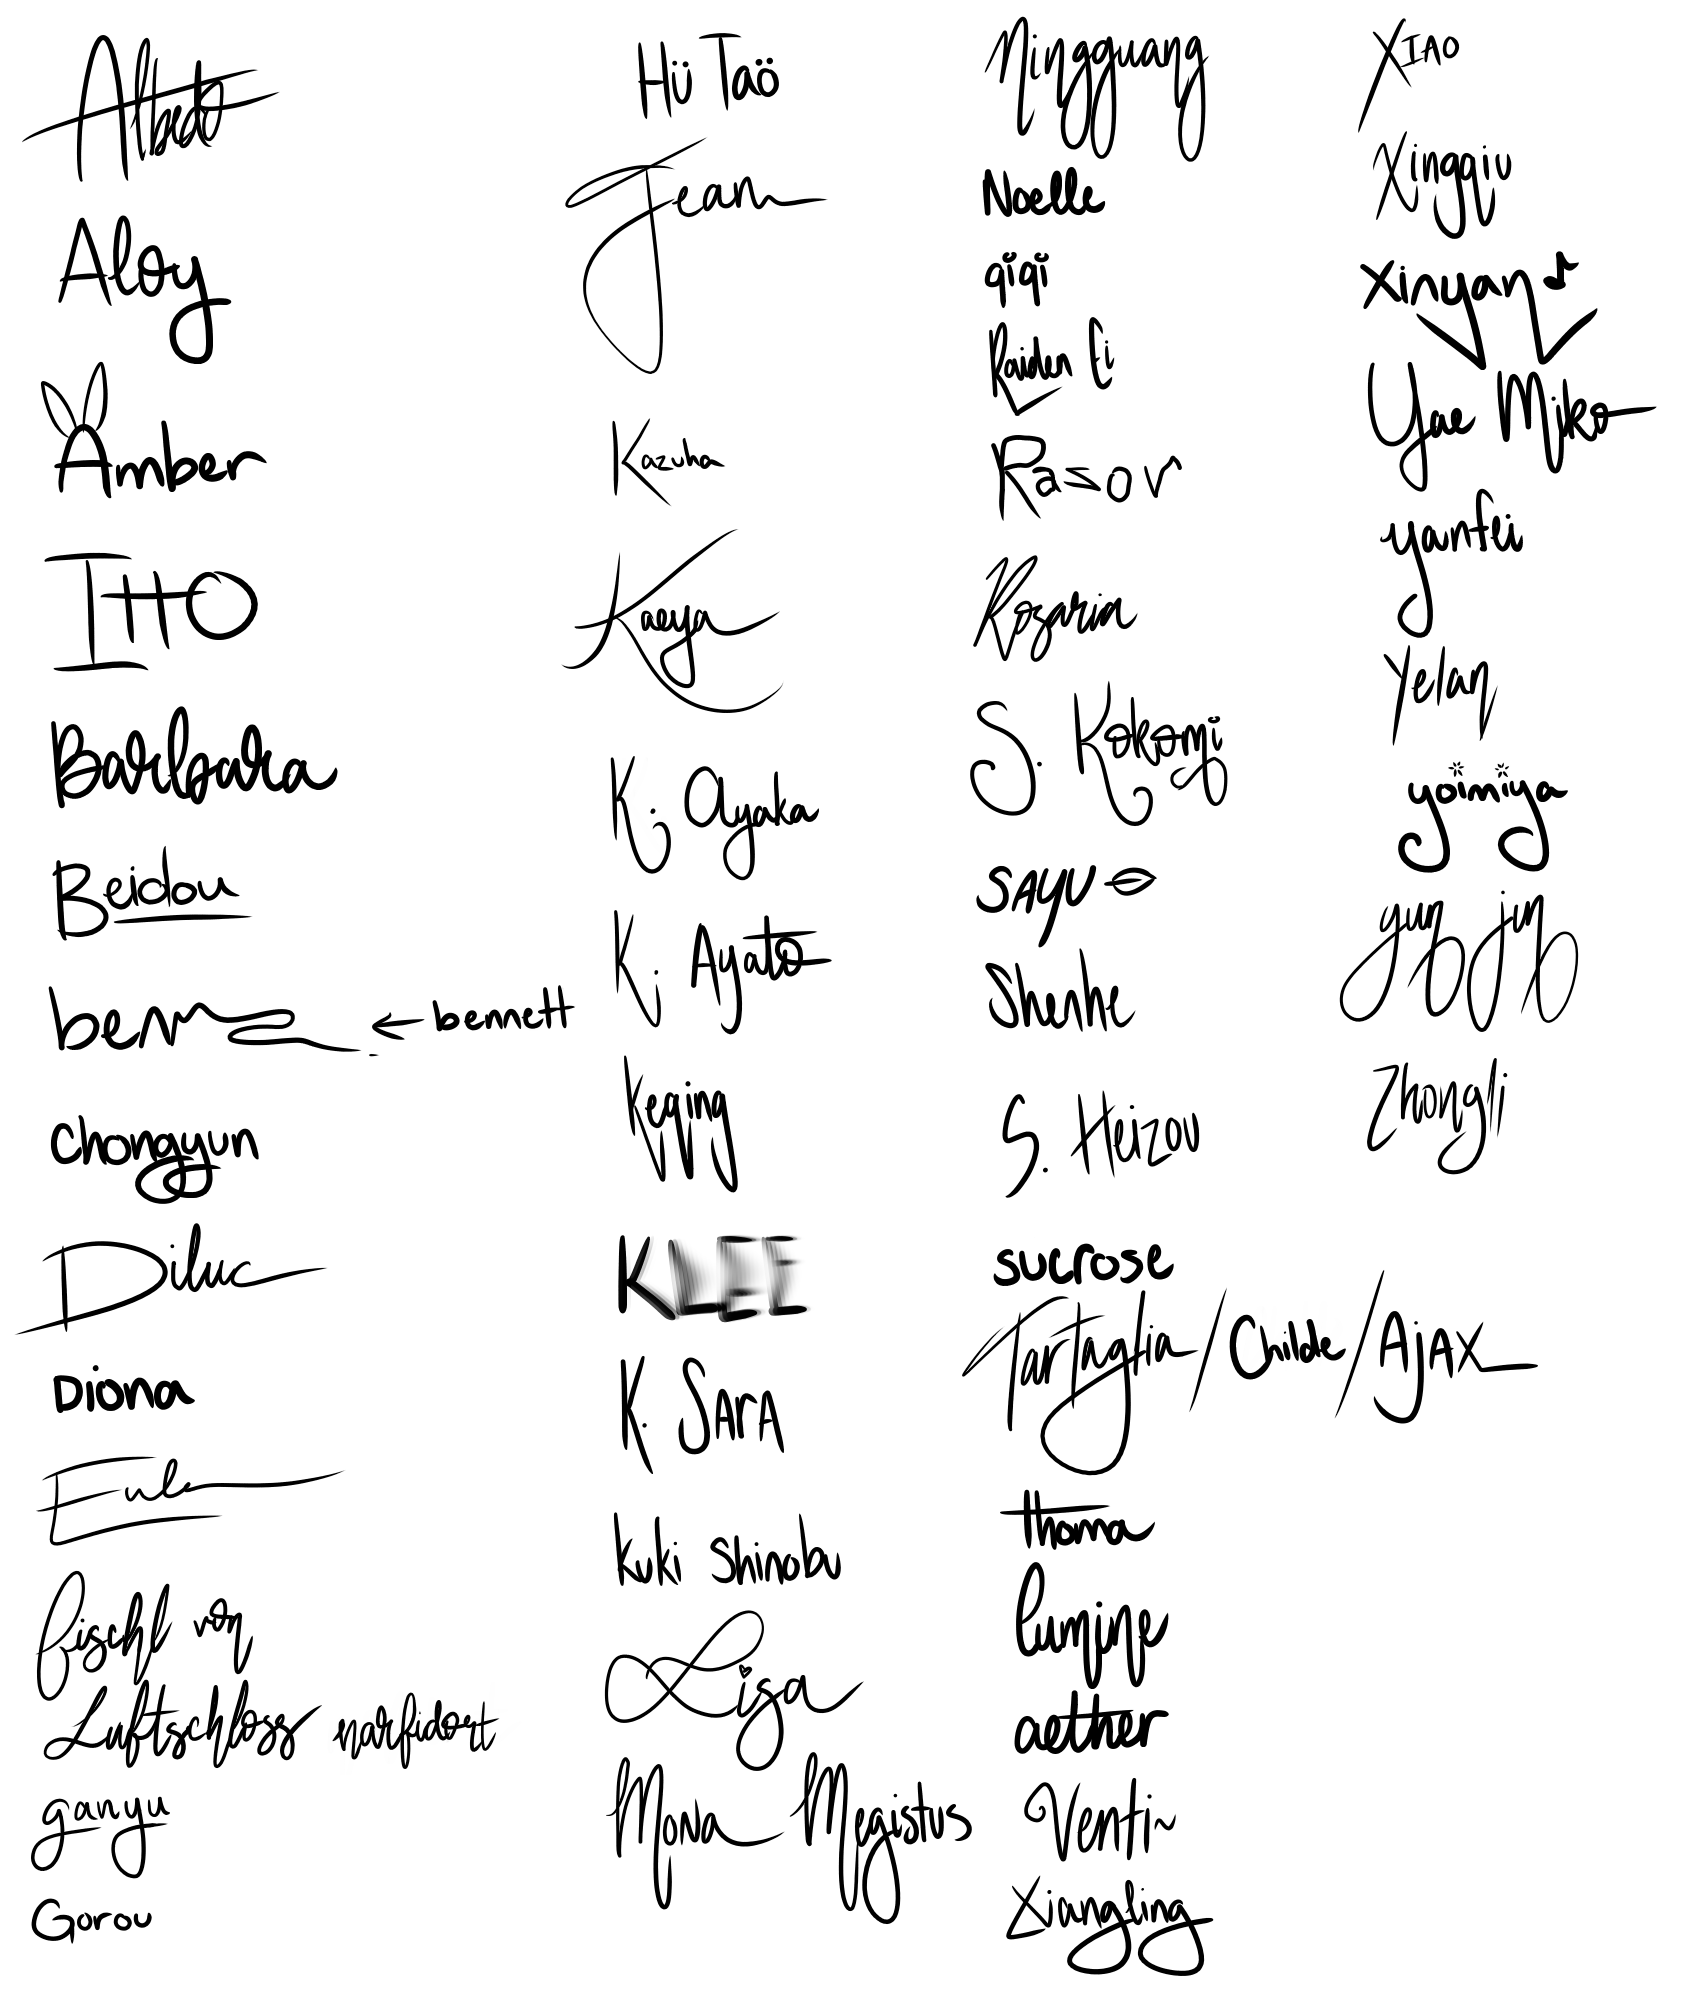 Albedo
Aloy
Amber
ITTO
Barbara
Beidou
benn ← bennett
Chongyun
Diluc
Diona
Eula
fischl von
Luftschloss narfidort
ganyu
Gorou
Hü Taö
Jean
Kazuha
Kaeya
K. Ayaka
K. Ayato
Keqing
KLEE
K. SArA
Kuki Shinobu
Lisa
Mona Megistus
Ningguang
Noelle
qiqi
Raiden Ei
Rasor
Rosaria
S. Kokomi
SAYU
Shenhe
S. Heizou
sucrose
Tartaglia / Childe / AjAX
thoma
lumine
aether
Venti~
Xiangling
XIAO
Xingqiu
Xinyan♪
Yae Miko
yanfei
Yelan
yoimiya
yun jin
Zhongli